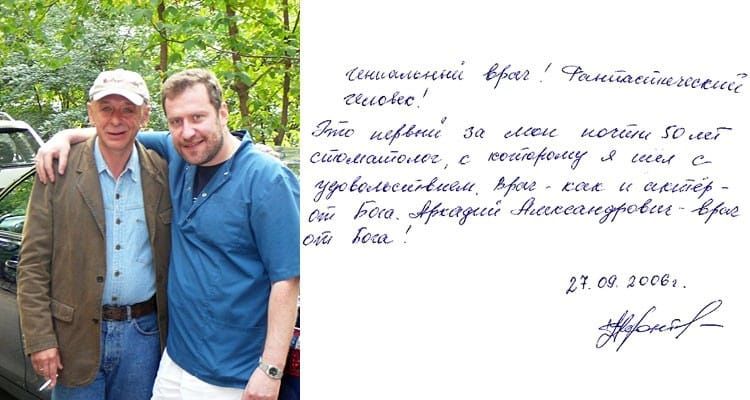 Гениальный врач! Фантастический
человек!
Это первый за мои почти 50 лет
стоматолог, к которому я шёл с
удовольствием. Врач - как и актёр -
от Бога. Аркадий Александрович - врач
от Бога!
27.09.2006г.